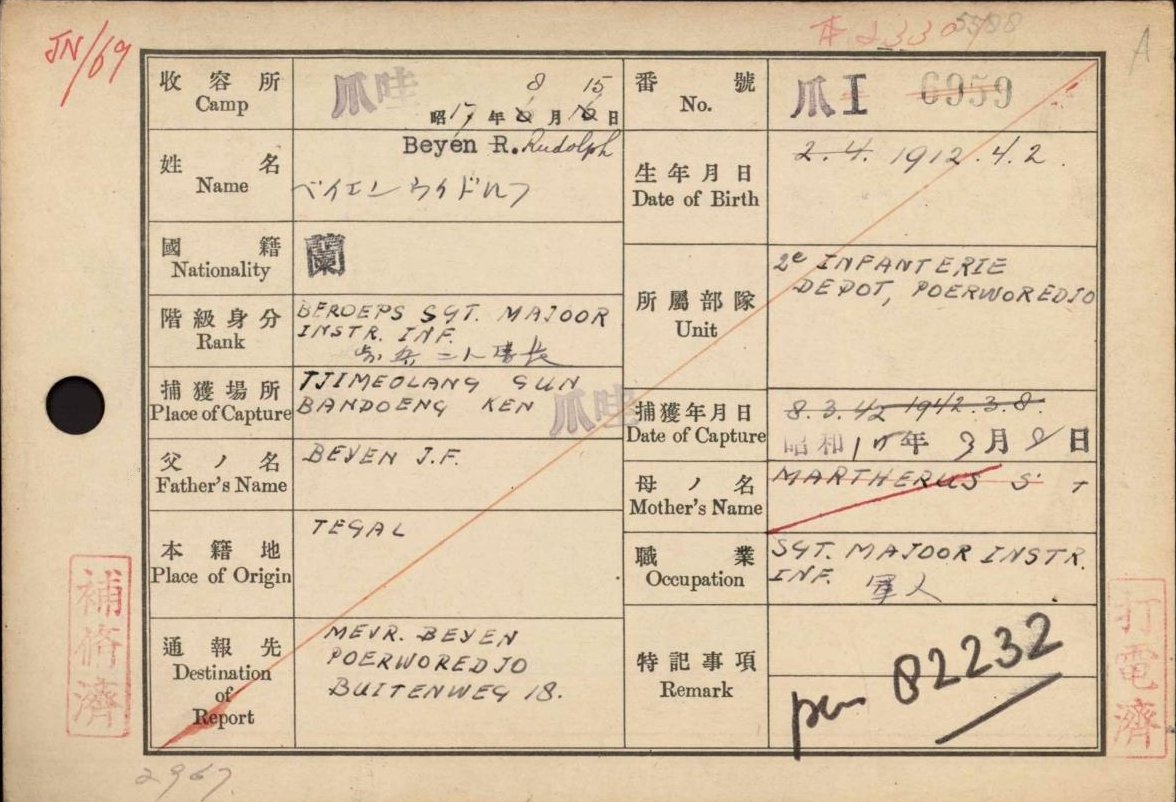 JN/69
A
收容所
Camp
爪哇
8 15
昭17年6月16日
番號
No.
爪I 6959
姓名
Name
Beyen R. Rudolph
ベイエン
生年月日
Date of Birth
2.4. 1912.4.2.
國籍
Nationality
蘭
所屬部隊
Unit
2e INFANTERIE
DEPOT, POERWOREDJO
階級身分
Rank
BEROEPS SGT. MAJOOR
INSTR. INF.
捕獲場所
Place of Capture
TJIMEOLANG GUN
BANDOENG KEN
爪哇
捕獲年月日
Date of Capture
8.3.42 1942.3.8.
昭和17年3月8日
父ノ名
Father's Name
BEYEN J.F.
母ノ名
Mother's Name
MARTHERUS S.
本籍地
Place of Origin
TEGAL
職業
Occupation
SGT. MAJOOR INSTR.
INF. 軍人
通報先
Destination
of
Report
MEVR. BEYEN
POERWOREDJO
BUITENWEG 18.
特記事項
Remark
82232
補修濟
打電濟
2967.